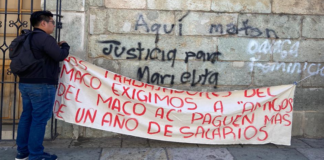 Aquí matan
Justicia para
Marielita
oaxaca
Feminicida
TRABAJADORES DEL
MACO EXIGIMOS A "AMIGOS
DEL MACO AC" PAGUEN MAS
DE UN AÑO DE SALARIOS